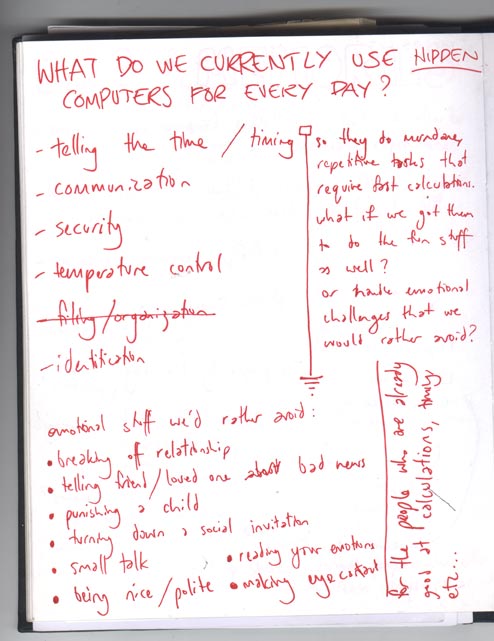 WHAT DO WE CURRENTLY USE HIDDEN
COMPUTERS FOR EVERY DAY?
- telling the time / timing
- communization
- security
- temperature control
- filing/organization
- identification
so they do mundane,
repetitive tasks that
require fast calculations.
what if we got them
to do the fun stuff
as well?
or handle emotional
challenges that we
would rather avoid?
emotional stuff we'd rather avoid:
• breaking off relationship
• telling friend/loved one about bad news
• punishing a child
• turning down a social invitation
• small talk
• being nice/polite
• reading your emotions
• making eye contact
for the people who are already
good at calculations, timing
etc...